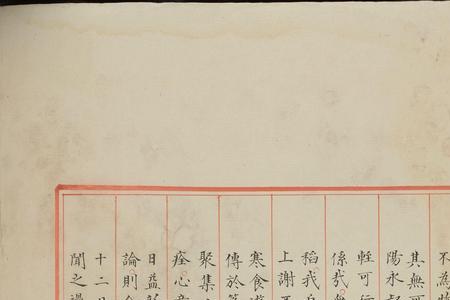 不為
其無可
陽永
輕可
係哉
稻我
上謝
寒食
傳於
聚集
痊心
日益
論則
十二
聞之